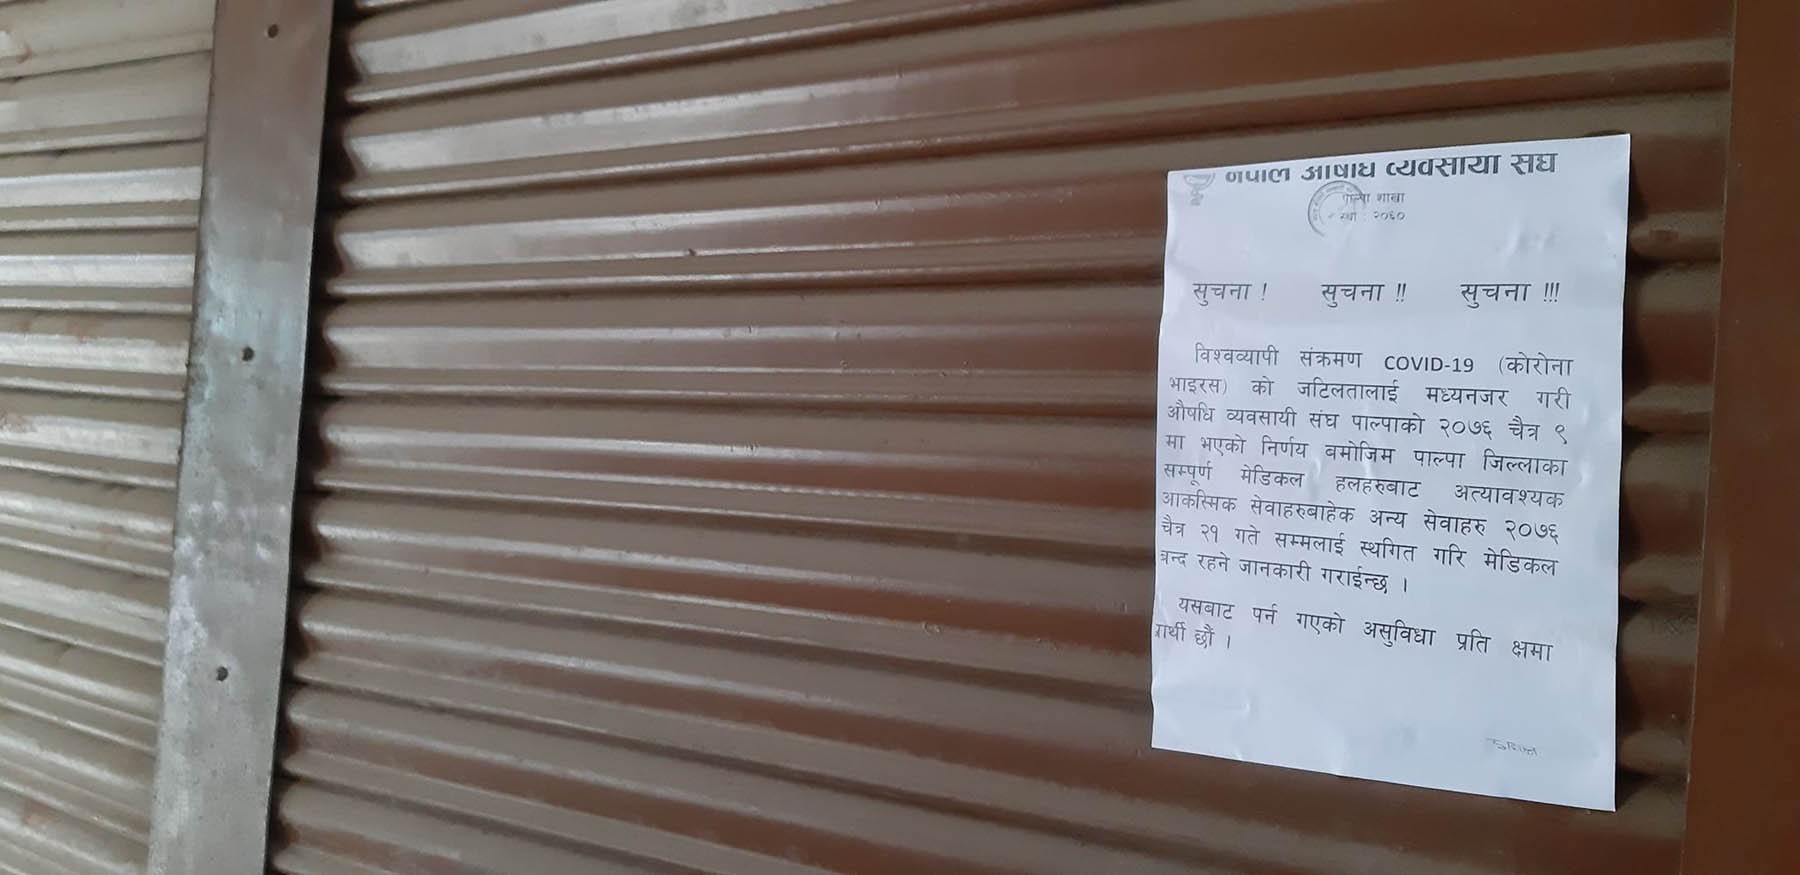 नेपाल औषधि व्यवसायी संघ
पाल्पा शाखा
स्था : २०६०
सुचना ! सुचना !! सुचना !!!
विश्वव्यापी संक्रमण COVID-19 (कोरोना
भाइरस) को जटिलतालाई मध्यनजर गरी
औषधि व्यवसायी संघ पाल्पाको २०७६ चैत्र ९
मा भएको निर्णय बमोजिम पाल्पा जिल्लाका
सम्पूर्ण मेडिकल हलहरुबाट अत्यावश्यक
आकस्मिक सेवाहरुबाहेक अन्य सेवाहरु २०७६
चैत्र २१ गते सम्मलाई स्थगित गरि मेडिकल
बन्द रहने जानकारी गराईन्छ ।
यसबाट पर्न गएको असुविधा प्रति क्षमा
प्रार्थी छौं ।